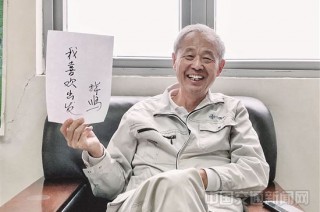 我喜欢出发
中国交通新闻网